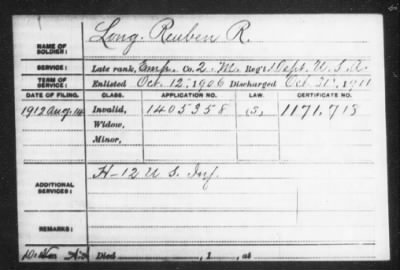 NAME OF SOLDIER: Long, Reuben R.
SERVICE: Late rank, Emp. Co. 2. M. Reg't Dept. U. S. A.
TERM OF SERVICE: Enlisted Oct. 12, 1906 Discharged Oct. 31, 1911
DATE OF FILING. CLASS. APPLICATION NO. LAW. CERTIFICATE NO.
1912 Aug. 14 Invalid, 1405358 (S) 1171.713
Widow,
Minor,
ADDITIONAL SERVICES: H-12 U S. Inf.
REMARKS:
Died , 1 , at